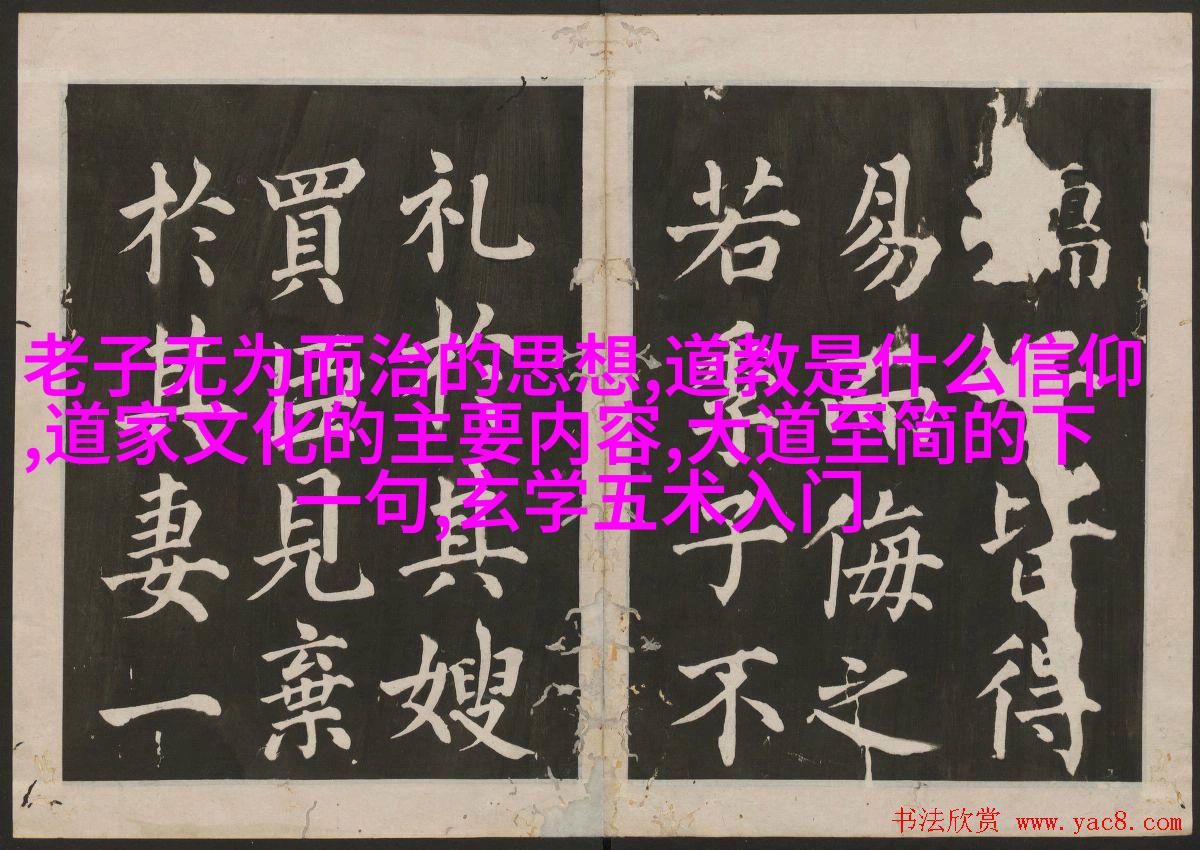 皆得
易而侮之
若季子不
礼於其嫂
買臣見棄
於其妻一
老子无为而治的思想,道教是什么信仰
,道家文化的主要内容,大道至简的下
一句,玄学五术入门
书法欣赏 www.yac8.com